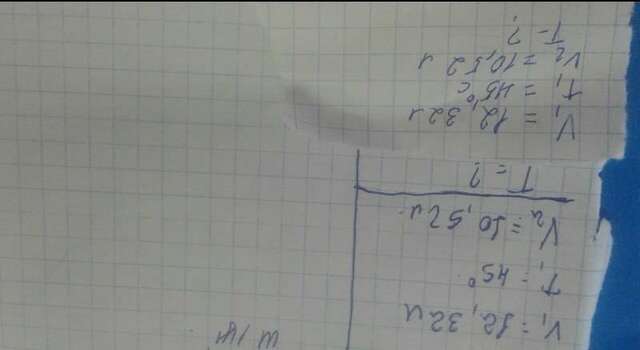 V₁ = 12,32 л
t₁ = 45°
V₂ = 10,52 л
T = ?
V₁ = 12,32 л
T₁ = 45°C
V₂ = 10,52 л
T = ?